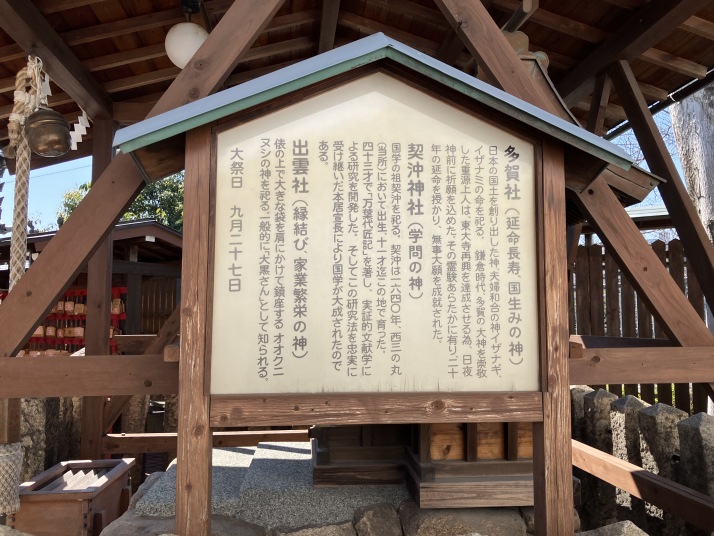 多賀社（延命長寿、国生みの神）
日本の国土を創り出した神、夫婦和合の神イザナギ、
イザナミの命を祀る。鎌倉時代、多賀の大神を崇敬
した重源上人は、東大寺再興を達成させる為、日夜
神前に祈願を込めた。その霊験あらたかに有り二十
年の延命を授かり、無事大願を成就された。
契沖神社（学問の神）
国学の祖契沖を祀る。契沖は一六四〇年、西三の丸
（当所）において出生、十一才迄この地で育った。
四十三才で、「万葉代匠記」を著し、実証的文献学に
よる研究を開発した。そしてこの研究法を忠実に
受け継いだ本居宣長により国学が大成されたので
ある。
出雲社（縁結び、家業繁栄の神）
俵の上で大きな袋を肩にかけて鎮座する オオクニ
ヌシの神を祀る。一般的に、「大黒さん」として知られる。
大祭日　九月二十七日